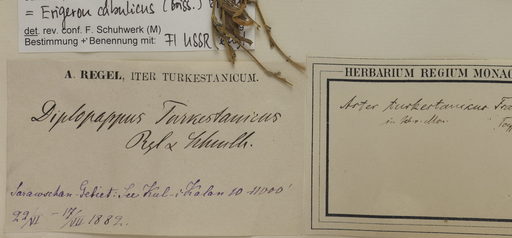 = Erigeron cabulicus (Boiss.)
det. rev. conf. F. Schuhwerk (M)
Bestimmung + Benennung mit: Fl USSR
A. REGEL, ITER TURKESTANICUM.
Diplopappus Turkestanicus
Rgl & Schmlh.
Sarawschan-Gebiet: See Kul-i-Kalan 10-11000'
22/VI - 17/VII 1882.
HERBARIUM REGIUM MONAC
Aster turkestanicus
in